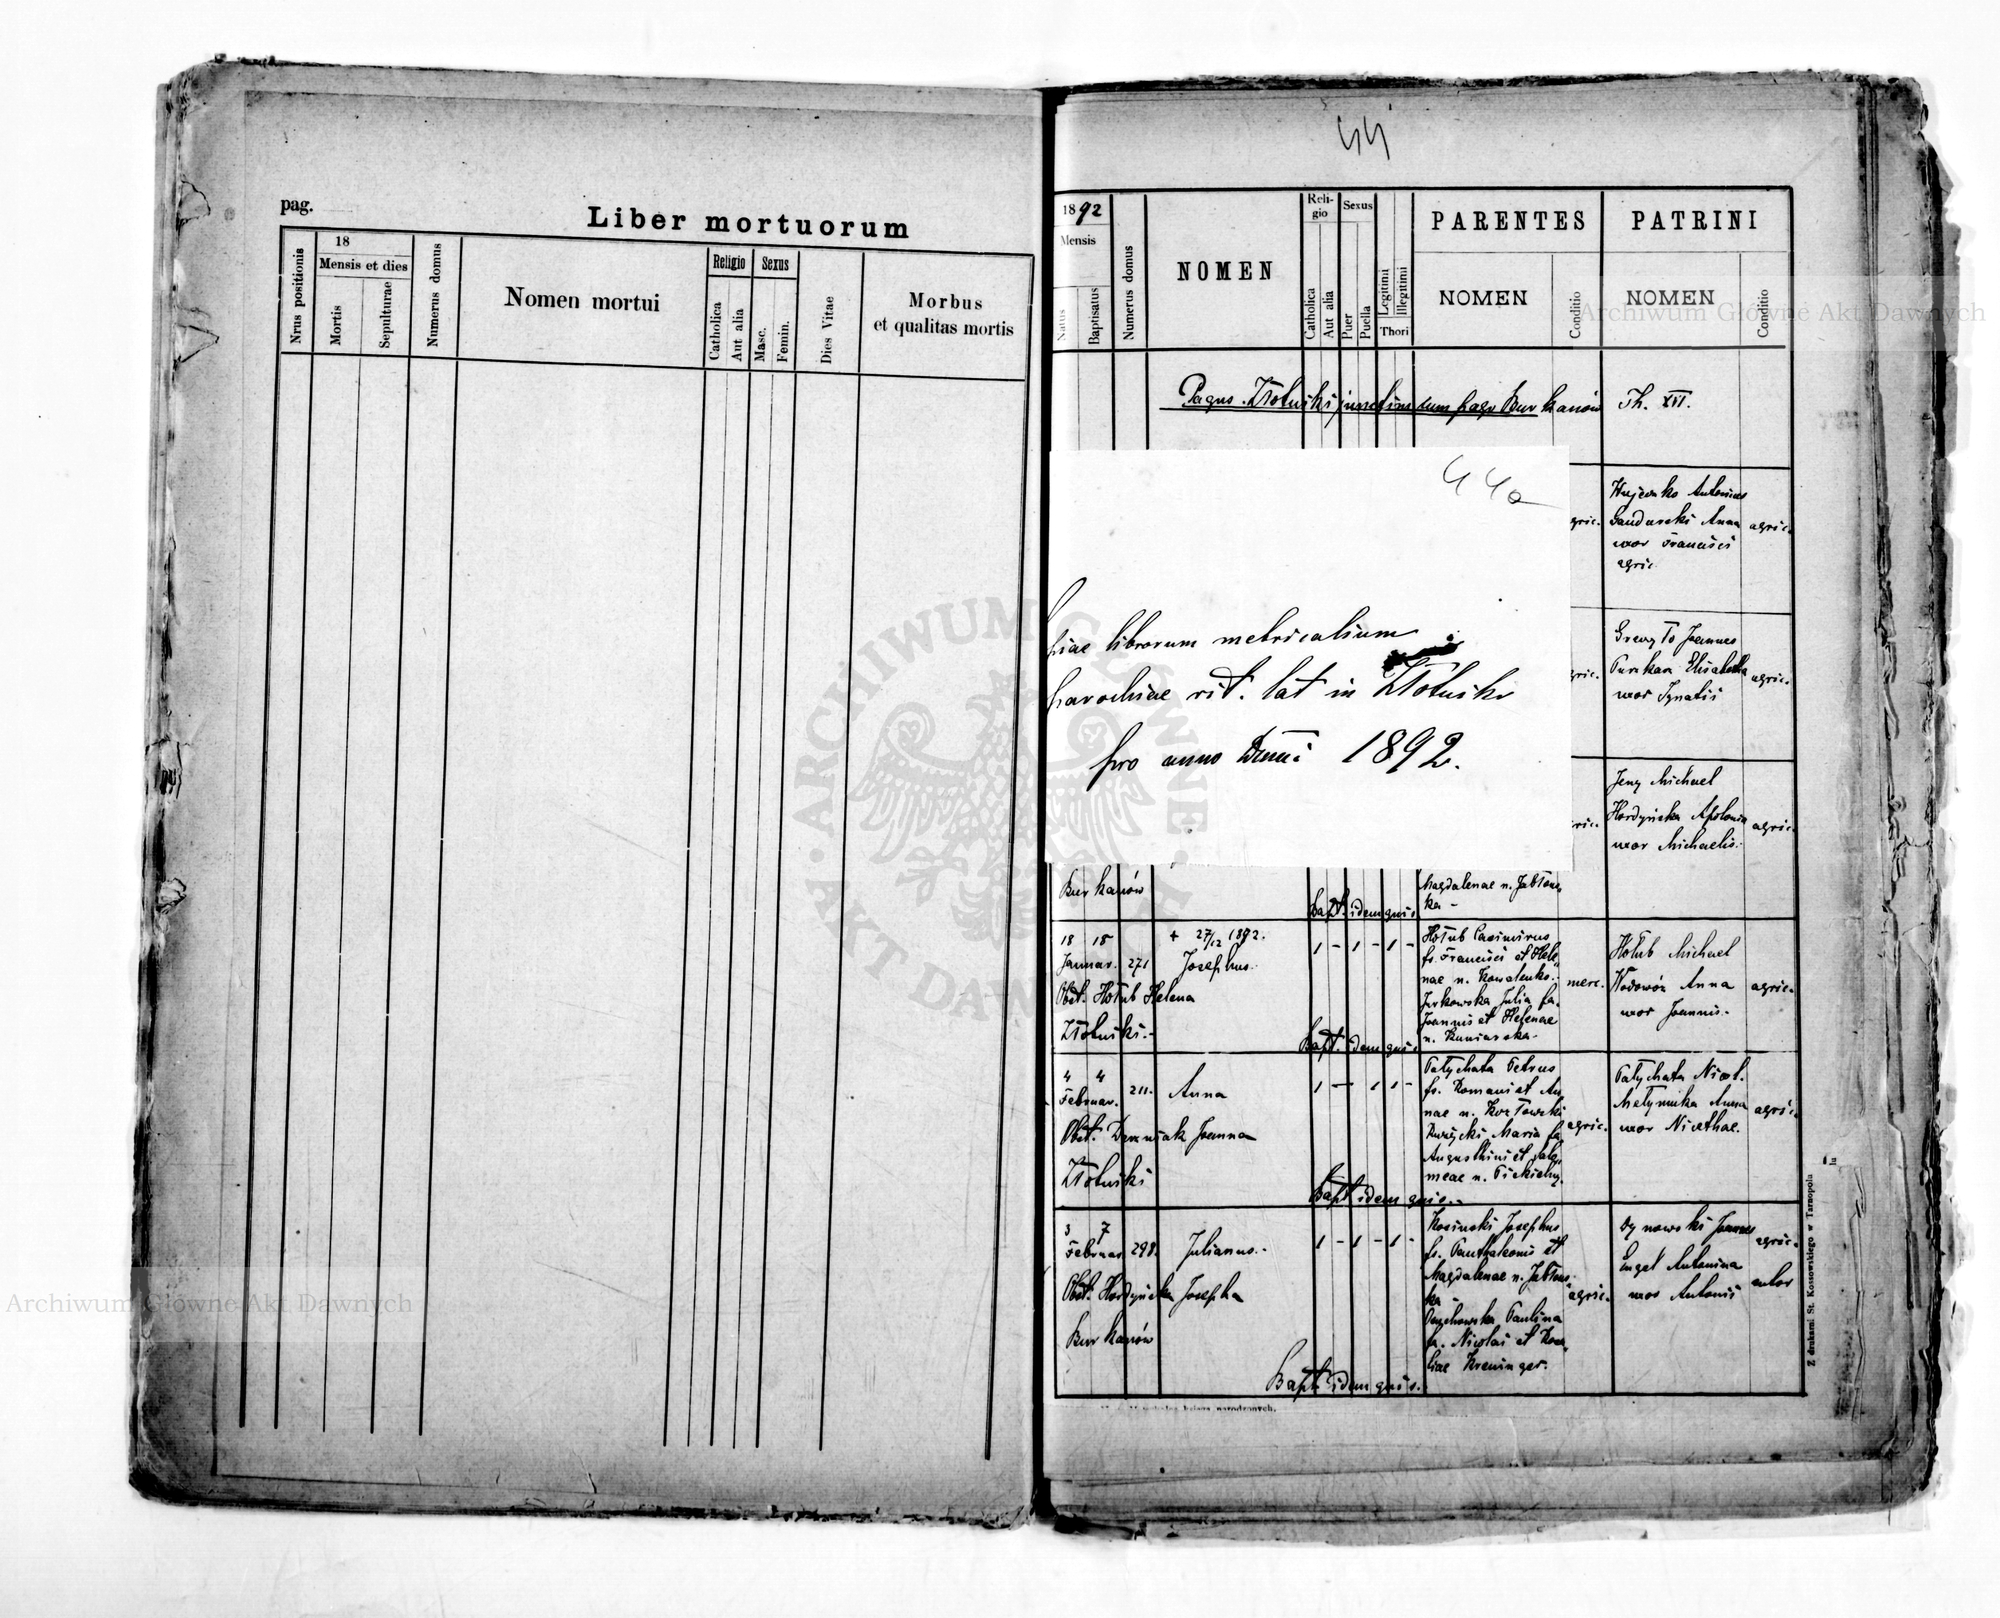 pag.
Liber mortuorum
Nrus positionis
18
Mensis et dies
Mortis
Sepulturae
Numerus domus
Nomen mortui
Religio
Catholica
Aut alia
Sexus
Masc.
Femin.
Dies Vitae
Morbus
et qualitas mortis
44
1892
Mensis
Natus
Baptisatus
Numerus domus
NOMEN
Reli-
gio
Catholica
Aut alia
Sexus
Puer
Puella
Legitimi
Illegitimi
Thori
PARENTES
NOMEN
Conditio
PATRINI
NOMEN
Conditio
Pagus Złotniki junctim cum pago Burkanów Th. XVI.
44a
piae librorum metricalium
parochiae rit. lat in Złotniki
pro anno Domini 1892.
Antonius
Anna
uxor Francisci
agric.
agric.
Joannes
Elisabetha
uxor Ignatii
agric.
Jeny Michael
Hordyńska Apolonia
uxor Michaelis.
agric.
Burkanów
Bapt. idem qui s.
Magdalenae n. Jabłons-
ka -
18 18
Januar. 271
+ 27/12 1892.
Josephus.
Obst. Hołub Helena
Złotniki.-
1 - 1 - 1 -
Bapt. idem qui s.
Hołub Casimirus
fs. Francisci et Hele-
nae n. Kowalenko.-
Jurkowska Julia fa.
Joannis et Helenae
merc.
Hołub Michael
Anna
uxor Joannis.-
agric.
4 4
Februar. 211.
Anna
Obst. Joanna
Złotniki
1 - 1 1 -
Bapt idem qui s.-
Pałychata Petrus
fs. Romani et An-
nae n. Kozłowski
Maria fa
Augusthini et Salo-
meae n.
agric.
Pałychata Nicol.
Anna
uxor Nicethae.
agric.
3 7
Februar 298.
Julianus.-
Obst. Hordyńska Josepha
Burkanów
1 - 1 - 1 -
Bapt. idem qui s.
Kosinski Josephus
fs. Panthaleonis et
Magdalenae n. Jabłons-
ka
Paulina
fa. Nicolai et Rosa-
liae Kreuinger.
agric.
Dynowski Joannes
Engel Antonina
uxor Antonii
agric.
Z drukarni St. Kossowskiego w Tarnopolu
Archiwum Główne Akt Dawnych
Archiwum Główne Akt Dawnych
ARCHIWUM GŁÓWNE AKT DAWNYCH